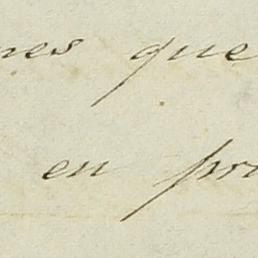 nes que
en pr